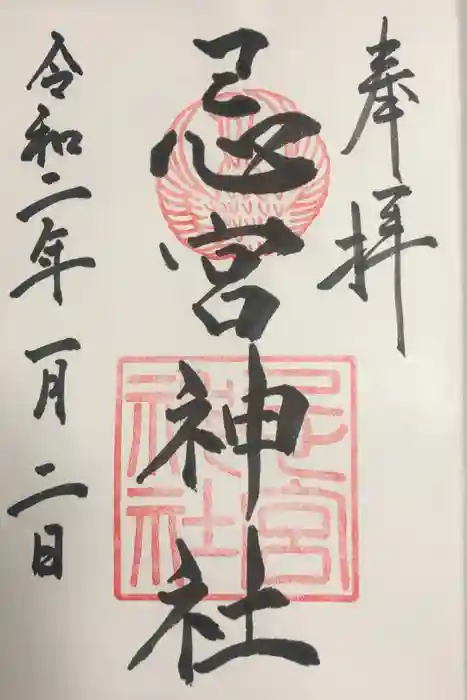 奉拝
忌宮神社
忌宮神社
令和二年一月二日